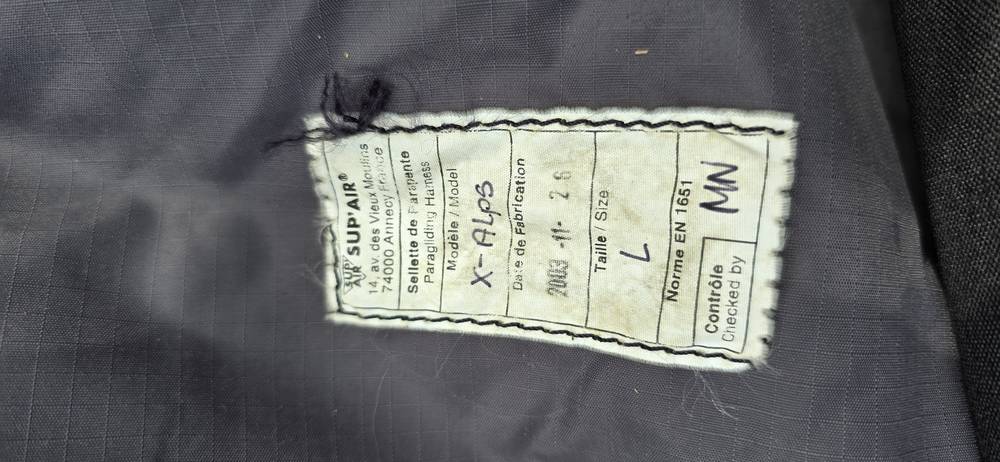 SUP' AIR SUP'AIR®
14, av. des Vieux Moulins
74000 Annecy France
Sellette de Parapente
Paragliding Harness
Modèle / Model
X-Alps
Date de Fabrication
2003 -11- 26
Taille / Size
L
Norme EN 1651
Contrôle
Checked by
MN